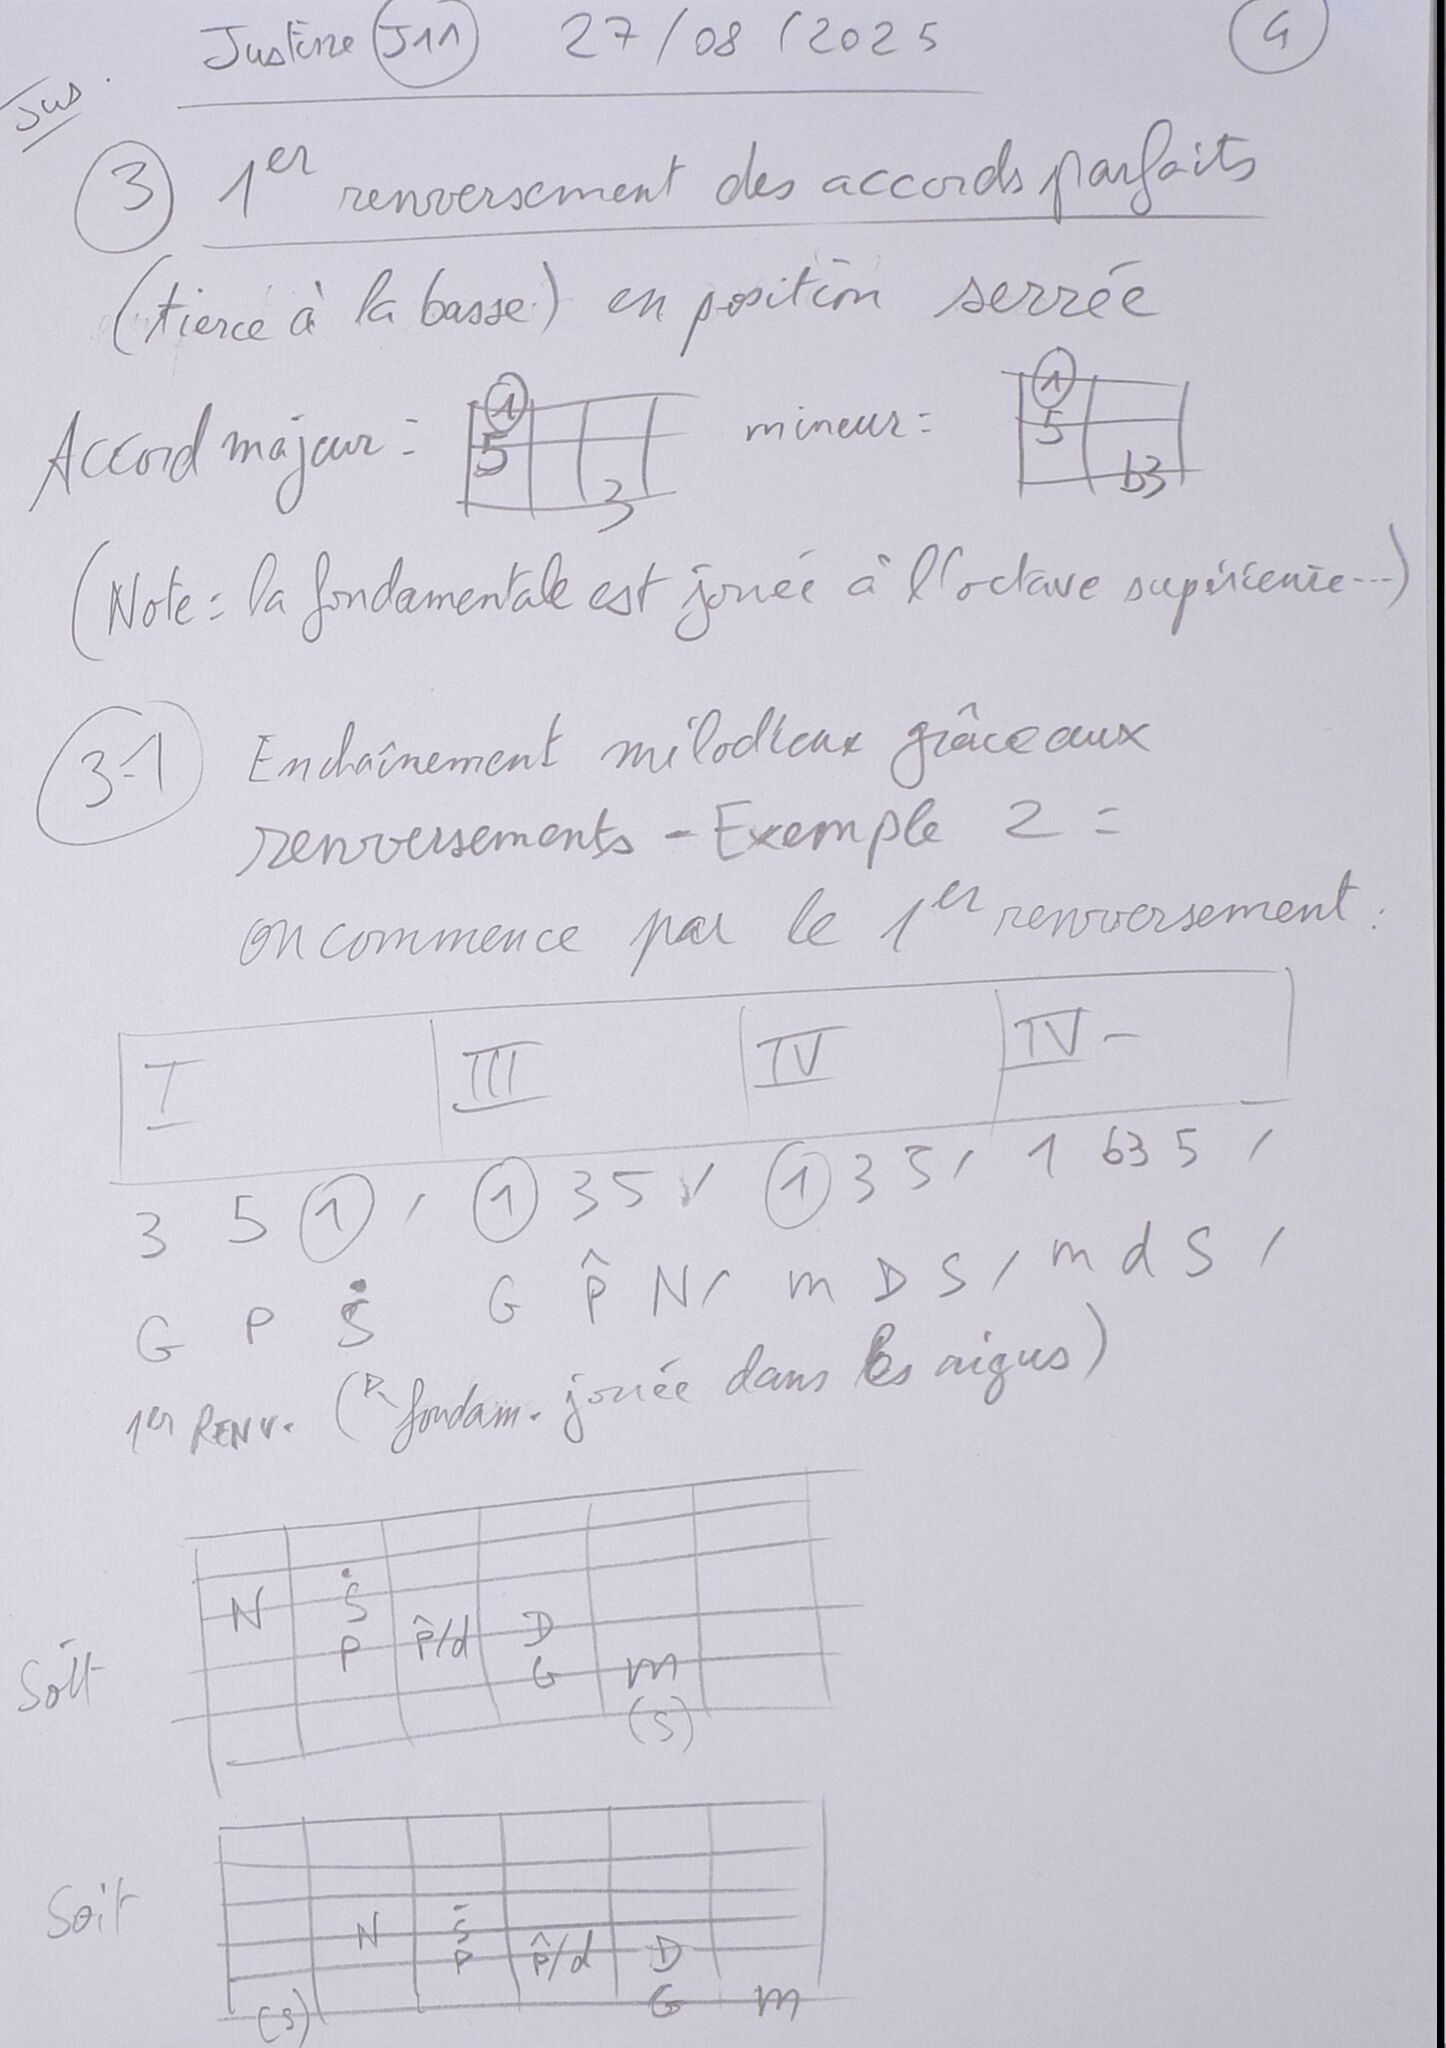 Justine J11 27/08/2025 4
Jus.
3 1er renversement des accords parfaits
(tierce à la basse) en position serrée
Accord majeur = 1 5 3 mineur = 1 5 b3
(Note = la fondamentale est jouée à l'octave supérieure...)
3-1 Enchaînement mélodieux grâce aux
renversements - Exemple 2 =
on commence par le 1er renversement :
I III IV IV -
3 5 1 / 1 3 5 / 1 3 5 / 1 b3 5 /
G P Ṡ G P̂ N / m D S / m d S /
1er RENV. (fondam. jouée dans les aigus)
N Ṡ
P P̂/d D
Soit G m
(S)
Soit N Ṡ
P P̂/d D
(S) G m